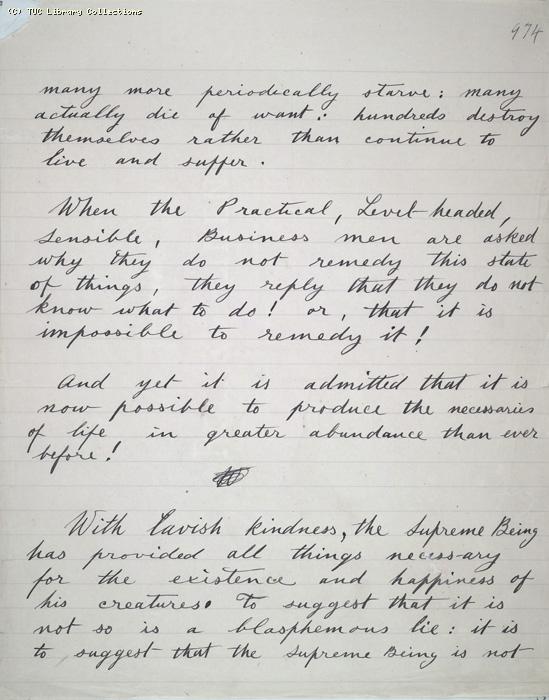 (C) TUC Library Collections
974
many more periodically starve: many
actually die of want: hundreds destroy
themselves rather than continue to
live and suffer.
When the Practical, Level-headed,
Sensible, Business men are asked
why they do not remedy this state
of things, they reply that they do not
know what to do! or, that it is
impossible to remedy it!
And yet it is admitted that it is
now possible to produce the necessaries
of life in greater abundance than ever
before!
With lavish kindness, the Supreme Being
has provided all things necessary
for the existence and happiness of
his creatures. To suggest that it is
not so is a blasphemous lie: it is
to suggest that the Supreme Being is not